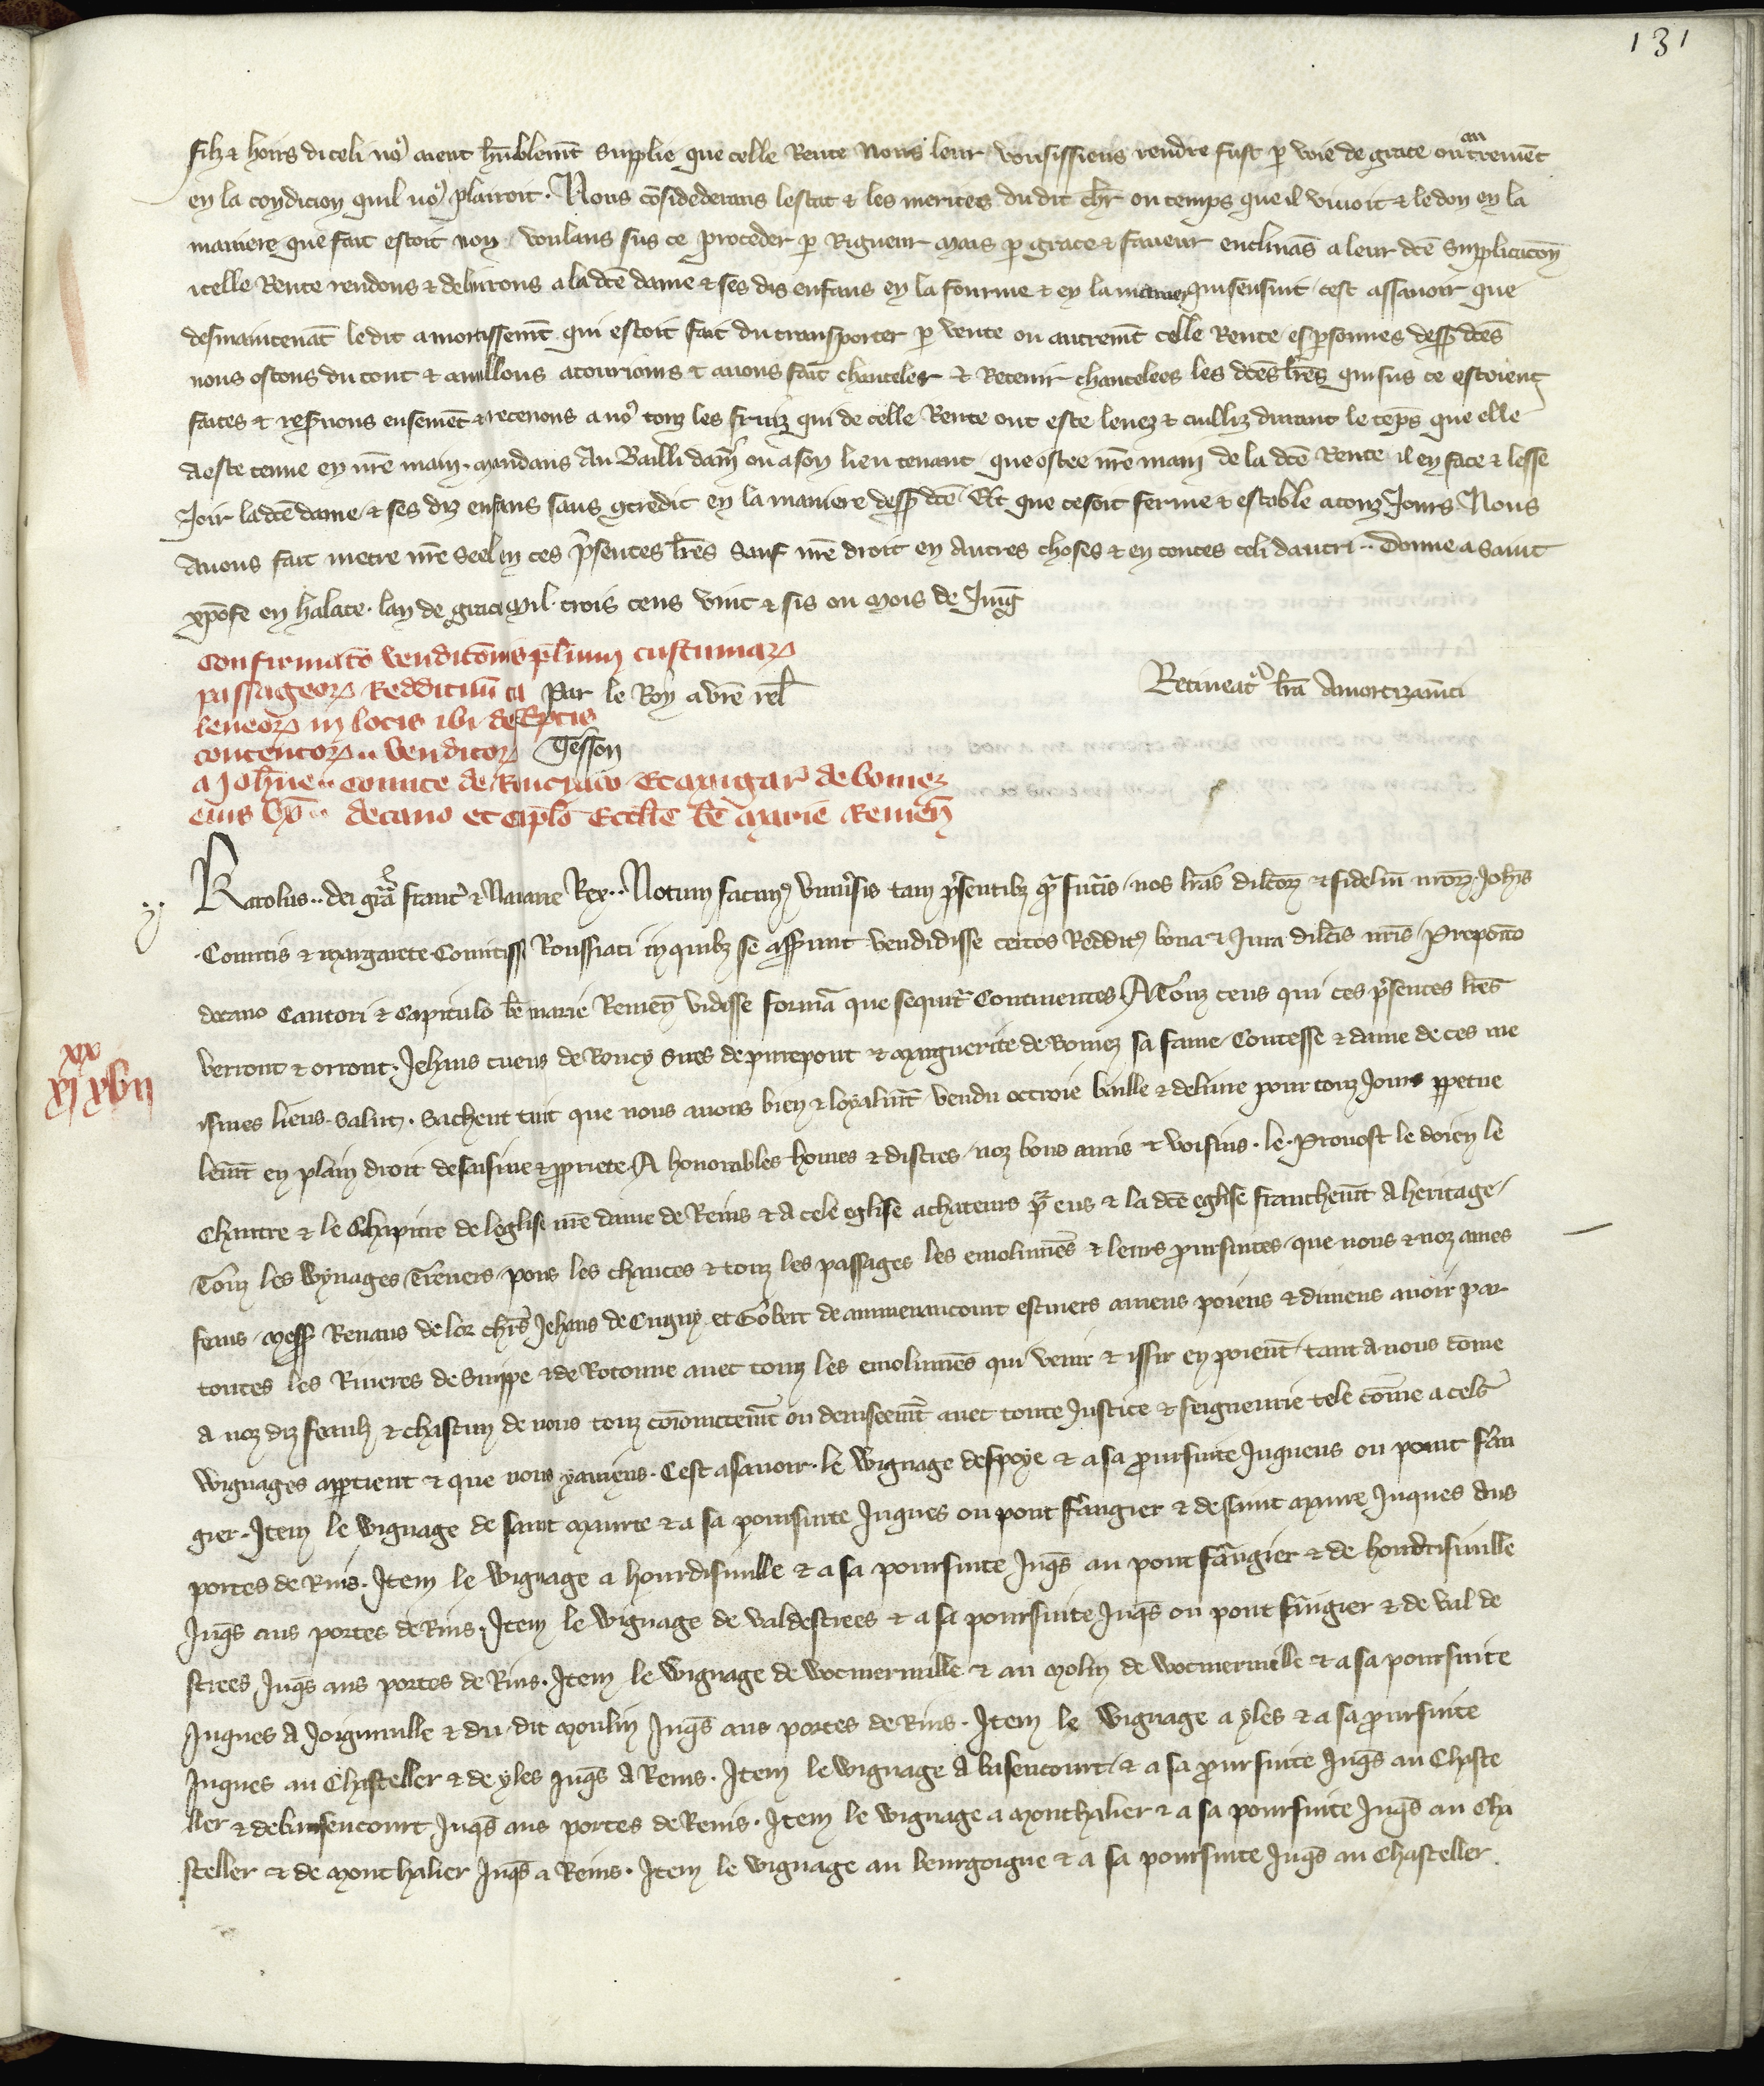 131
filz & hoirs diceli no9 aient hūblemt supplie que celle Rente Nous leur vousissiens rendre fust p voie de grace ou autremēt
en la condicion quil no9 plairoit. Nous cōsidederans lestat & les merites du dit chlr ou temps que il vivoit & le don en la
maniere que fait estoit non voulans sus ce proceder p Rigueur mais p grace & faveur enclinās a leur dcē supplicacōn
icelle Rente rendons & delivrons a la dcē dame & ses dis enfans en la fourme & en la maniere qui sensuit cest assavoir que
desmaintenāt le dit amortissemt qui estoit fait du transporter p vente ou autremt celle Rente es psonnes dess dcēs
nous ostons du tout & anullons & avons fait chanceler & Retenir chancelees les dcēs lrēs qui sus ce estoient
faites & resvons ensemēt & retenons a no9 touz les fruiz qui de celle Rente ont este levez & cuilliz durant le tēps que elle
a este tenue en nrē main. mandans au Bailli damī ou a son lieu tenant que ostee nrē main de la dcē Rente il en face & lesse
Joir la dcē dame & ses diz enfans sans gtredit en la maniere dess dcē Et que ce soit ferme & estable a touz Jours Nous
avons fait metre nrē seel en ces psentes lrēs Sauf nrē droit en autres choses & en toutes celi dautri.. Donne a saint
xpōfe en halate. lan de grace mil. trois cens vint & sis ou mois de Juing
Confirmatō venditōnis plurium custumarꝫ
passageorꝫ Reddituū
Par le Roy a vrē rel
Retineatr lrā Amortizamti
teneorꝫ in locis ibi descptis
contentorꝫ .. venditorꝫ
Tesson
a Johne.. comite de Rouciaco Et margar de bomez
eius ux̄.. decano et caplo Ecclie bē marie Remen̄
Karolus.. dei grā franc & Navarre Rex.. Notum facim9 univsis tam psentibz q futuris nos lrās dilcorꝫ & fidelium nrorꝫ Johis
Comitis & margarete Comitisse Roussiaci in quibz se asserunt vendidisse certos Reddit9 bona & Jura dilcis nris Preposito
decano Cantori & Capitulo bē marie Remen̄ vidisse formā que sequitr Continentes A Touz ceus qui ces psentes lrēs
verront & orront. Jehans cuens de Roucy sires de pirrepont & marguerite de Bomez sa fame Contesse & dame de ces me
ismes lieus. Salut. Sachent tuit que nous avons bien & loyalmt vendu octroie baille & delivre pour touz Jours ppetue
lemt en plain droit de saisine & ppriete A honorables homes & discres noz bons amis & voisins. le Prevost le doien le
Chantre & le Chapitre de leglise nrē dame de Reins & a cele eglise achateurs pr eus & la dcē eglise franchemt a heritage
Touz les Wynages Travers pons les chauces & touz les passages les emolumēs & leurs poursuites que nous & noz ames
feaus mess Renaus de lor chrs Jehans de Cugny et Gobert de aumenancourt escuiers aviens poiens & diviens avoir par
toutes les Rivieres de Suippe & de Rotonne avec touz les emolumēs qui venir & issir en poient tant a nous come
a noz diz feaulz & chascun de nous touz cōiointemt ou deviseemt avec toute Justice & seigneurie tele cōme a cels
wignages apptient & que nous y aviens. Cest asavoir. le Wignage despoye & a sa poursuite Juques ou pont fan
gier. Item le wignage de saint maurre & a sa poursuite Juques ou pont fangier & de saint maure Juques aus
portes de Rins. Item le wignage a hourdisiville & a sa poursuite Juqs au pont fangier & de hourdisiville
Juqs aus portes de Rins. Item le wignage de valdestrees & a sa poursuite Juqs ou pont fangier & de val de
strees Juqs aus portes de Rins. Item le wignage de wocmerville & au molin de wocmerville & a sa poursuite
Juques a Joignuille & du dit moulin Juqs aus portes de Rins. Item le wignage a yles & a sa poursuite
Juques au Chasteller & de yles Juqs a Reins. Item le wignage a basencourt & a sa poursuite Juqs au Chaste
ller & de basencourt Juqs aus portes de Reins. Item le wignage a Monthalier & a sa poursuite Juqs au Cha
steller & de mont halier Juqs a Reins. Item le wignage au bourgoigne & a sa poursuite Juqs au Chasteller